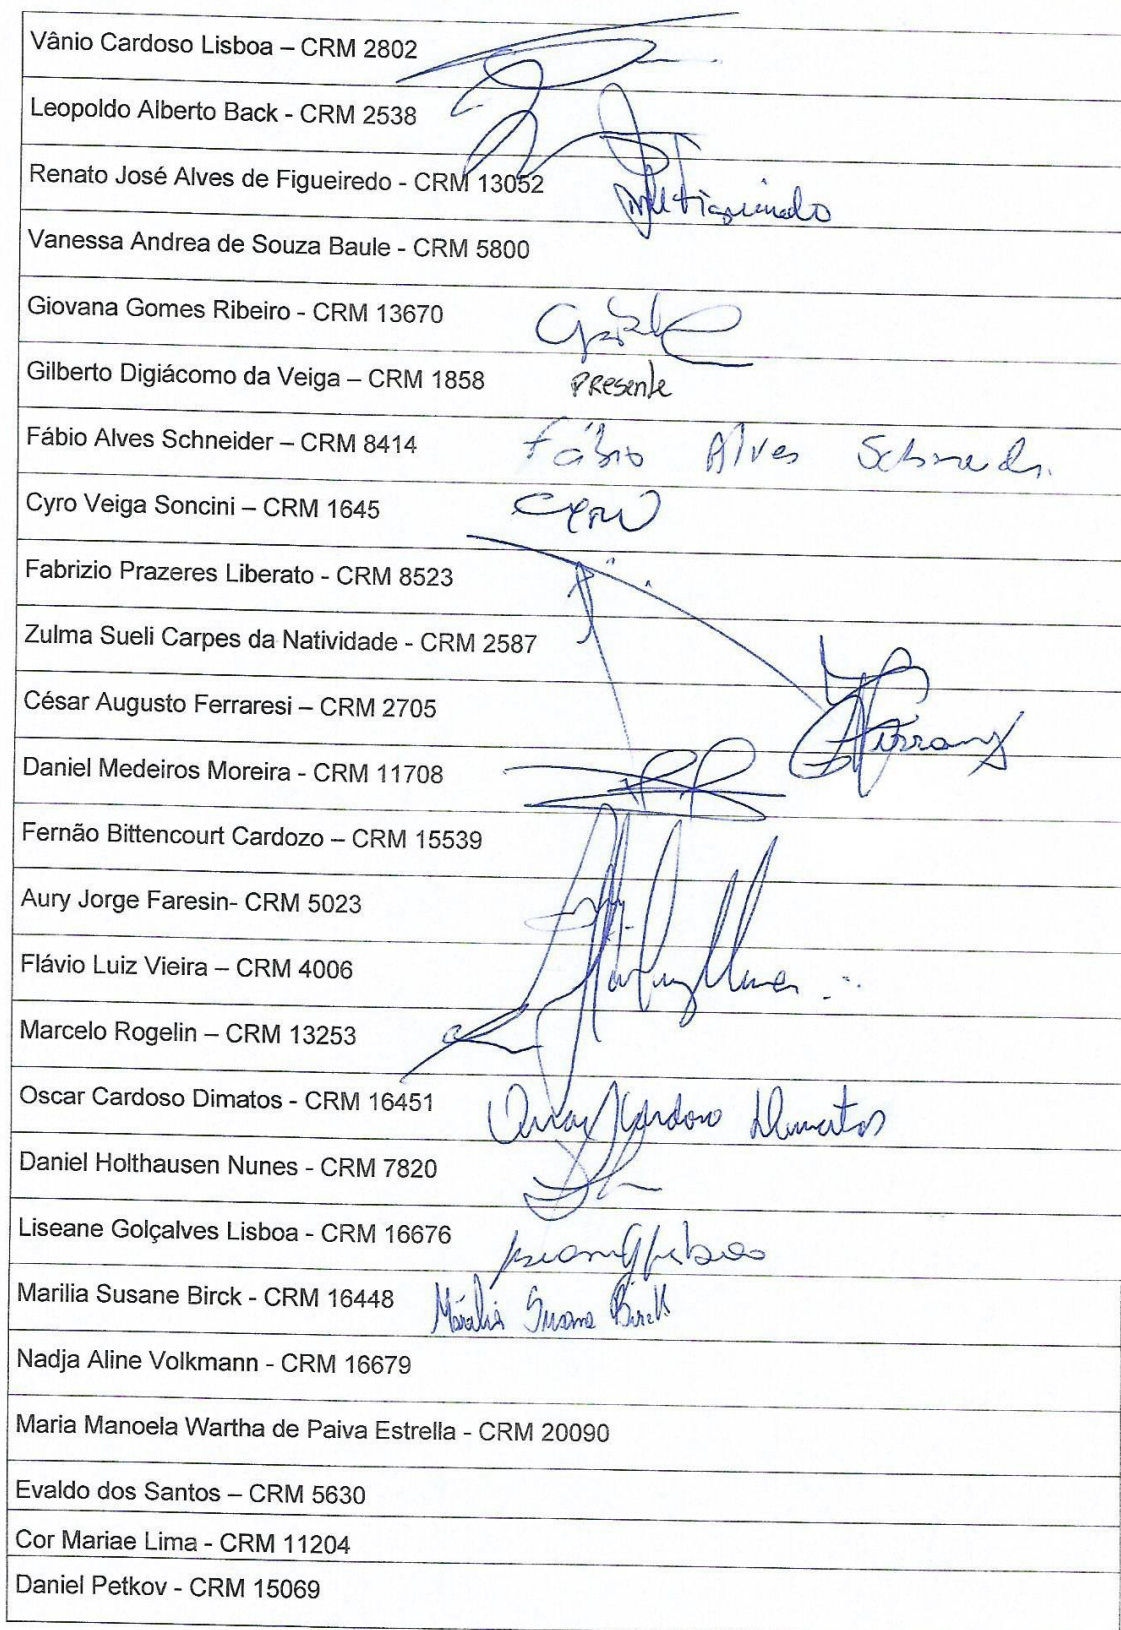 Vânio Cardoso Lisboa – CRM 2802
Leopoldo Alberto Back - CRM 2538
Renato José Alves de Figueiredo - CRM 13052
Vanessa Andrea de Souza Baule - CRM 5800
Giovana Gomes Ribeiro - CRM 13670
Gilberto Digiácomo da Veiga – CRM 1858 Presente
Fábio Alves Schneider – CRM 8414 Fábio Alves
Cyro Veiga Soncini – CRM 1645 Cyro
Fabrizio Prazeres Liberato - CRM 8523
Zulma Sueli Carpes da Natividade - CRM 2587
César Augusto Ferraresi – CRM 2705
Daniel Medeiros Moreira - CRM 11708
Fernão Bittencourt Cardozo – CRM 15539
Aury Jorge Faresin- CRM 5023
Flávio Luiz Vieira – CRM 4006
Marcelo Rogelin – CRM 13253
Oscar Cardoso Dimatos - CRM 16451 Oscar Cardoso Dimatos
Daniel Holthausen Nunes - CRM 7820
Liseane Golçalves Lisboa - CRM 16676
Marilia Susane Birck - CRM 16448 Marilia Susane Birck
Nadja Aline Volkmann - CRM 16679
Maria Manoela Wartha de Paiva Estrella - CRM 20090
Evaldo dos Santos – CRM 5630
Cor Mariae Lima - CRM 11204
Daniel Petkov - CRM 15069